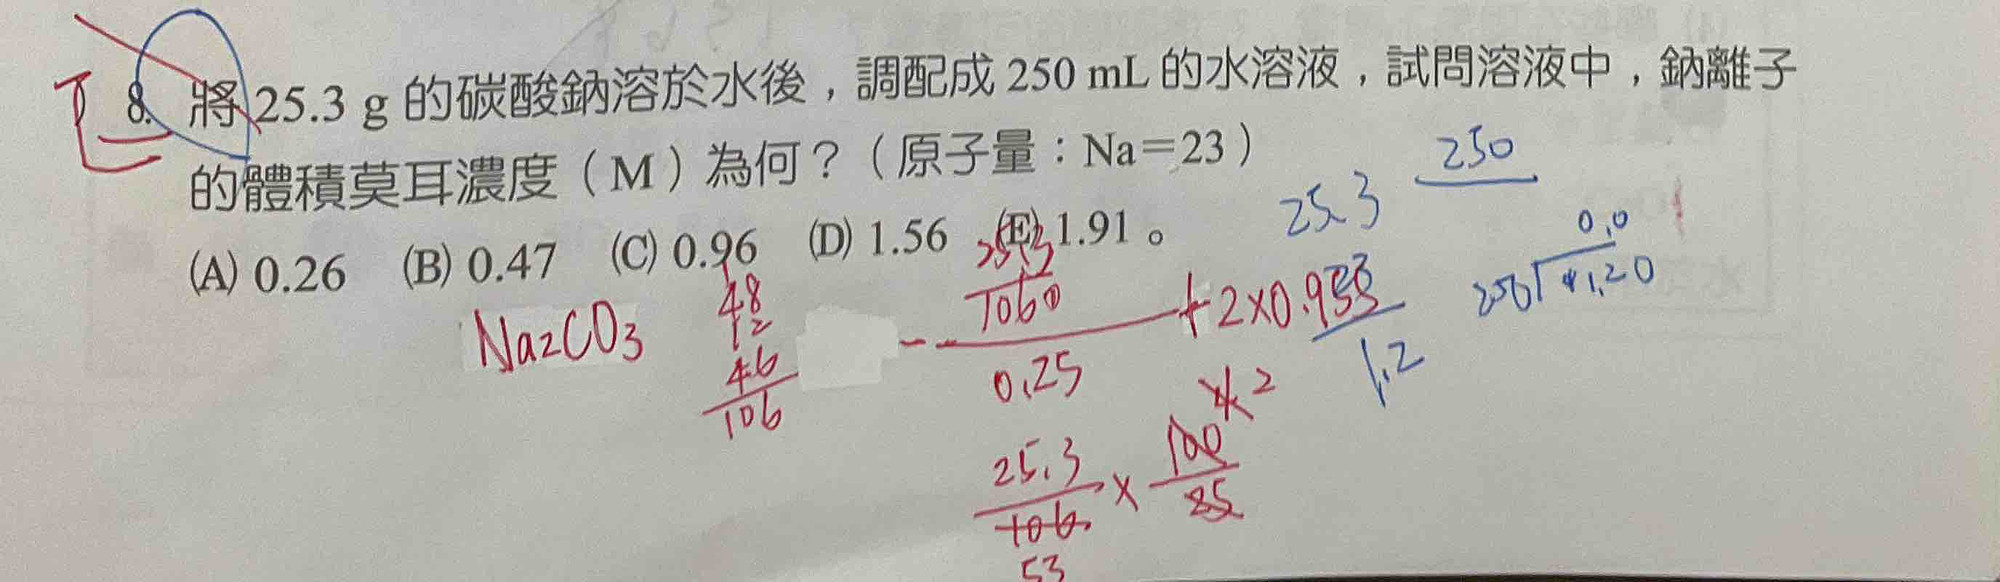 8. 將 25.3 g 的碳酸鈉溶於水後，調配成 250 mL 的水溶液，試問溶液中，鈉離子
的體積莫耳濃度（M）為何？（原子量：Na＝23）
(A) 0.26 (B) 0.47 (C) 0.96 (D) 1.56 (E) 1.91。
25.3 250
Na2CO3
48
12
46
106
25.3
106
0.25
2×0.953
1.2
0.0
250 41.20
25.3 × 100
106 25
53